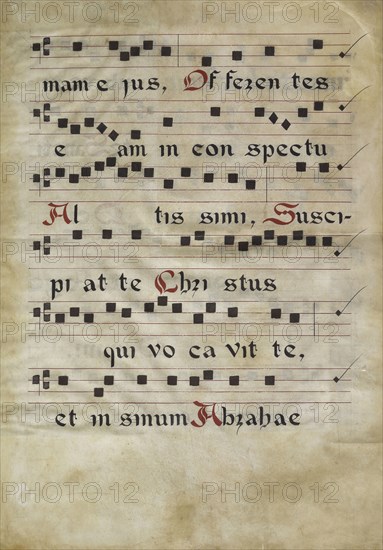 mam e jus, Offeren tes
e am in con spectu
Al tis simi, Susci-
pi at te Chri stus
qui vo ca vit te,
et in sinum Abrahae